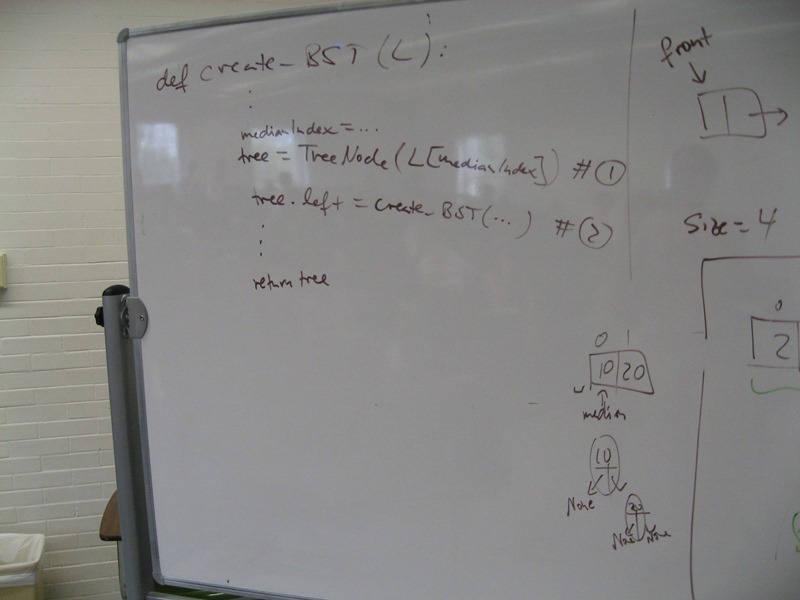 def create_BST(L):
:
medianIndex = ...
tree = TreeNode(L[medianIndex]) # ①
tree.left = create_BST(...) # ②
:
:
return tree
front
1
size = 4
0
2
0 1
10 20
median
10
None
20
None None